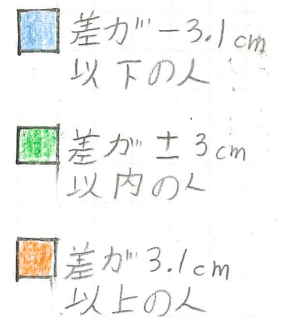 差が-3.1cm
以下の人
差が±3cm
以内の人
差が3.1cm
以上の人